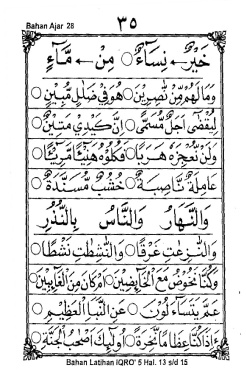 Bahan Ajar 28
٣٥
خَيْرٌ ← نِسَآءٌ ○ مِنْ ← مَّآءٍ
وَمَالَهُمْ مِّنْ نّٰصِرِيْنَ ○ هُوَ فِيْ ضَلٰلٍ مُّبِيْنٍ ○
لِيُقْضٰٓى اَجَلٌ مُّسَمًّى ○ اِنَّ كَيْدِيْ مَتِيْنٌ ○
وَلَنْ نُّعْجِزَهٗ هَرَبًا ○ فَكُلُوْهُ هَنِيْٓئًا مَّرِيْٓئًا ○
عَامِلَةٌ نَّاصِبَةٌ ○ خُشُبٌ مُّسَنَّدَةٌ ○
وَالنَّهَارِ وَالنَّاسُ بِالنُّذُرِ
وَالنّٰزِعٰتِ غَرْقًا ○ وَالنّٰشِطٰتِ نَشْطًا ○
وَكُنَّا نَخُوْضُ مَعَ الْخَآئِضِيْنَ ○ اَمْ كَانَ مِنَ الْغَآئِبِيْنَ
عَمَّ يَتَسَآءَلُوْنَ ○ عَنِ النَّبَإِ الْعَظِيْمِ ○
ءَاِذَا كُنَّا عِظَامًا نَّخِرَةً ○ اُولٰٓئِكَ اَصْحٰبُ الْجَنَّةِ ○
Bahan Latihan IQRO' 5 Hal. 13 s/d 15